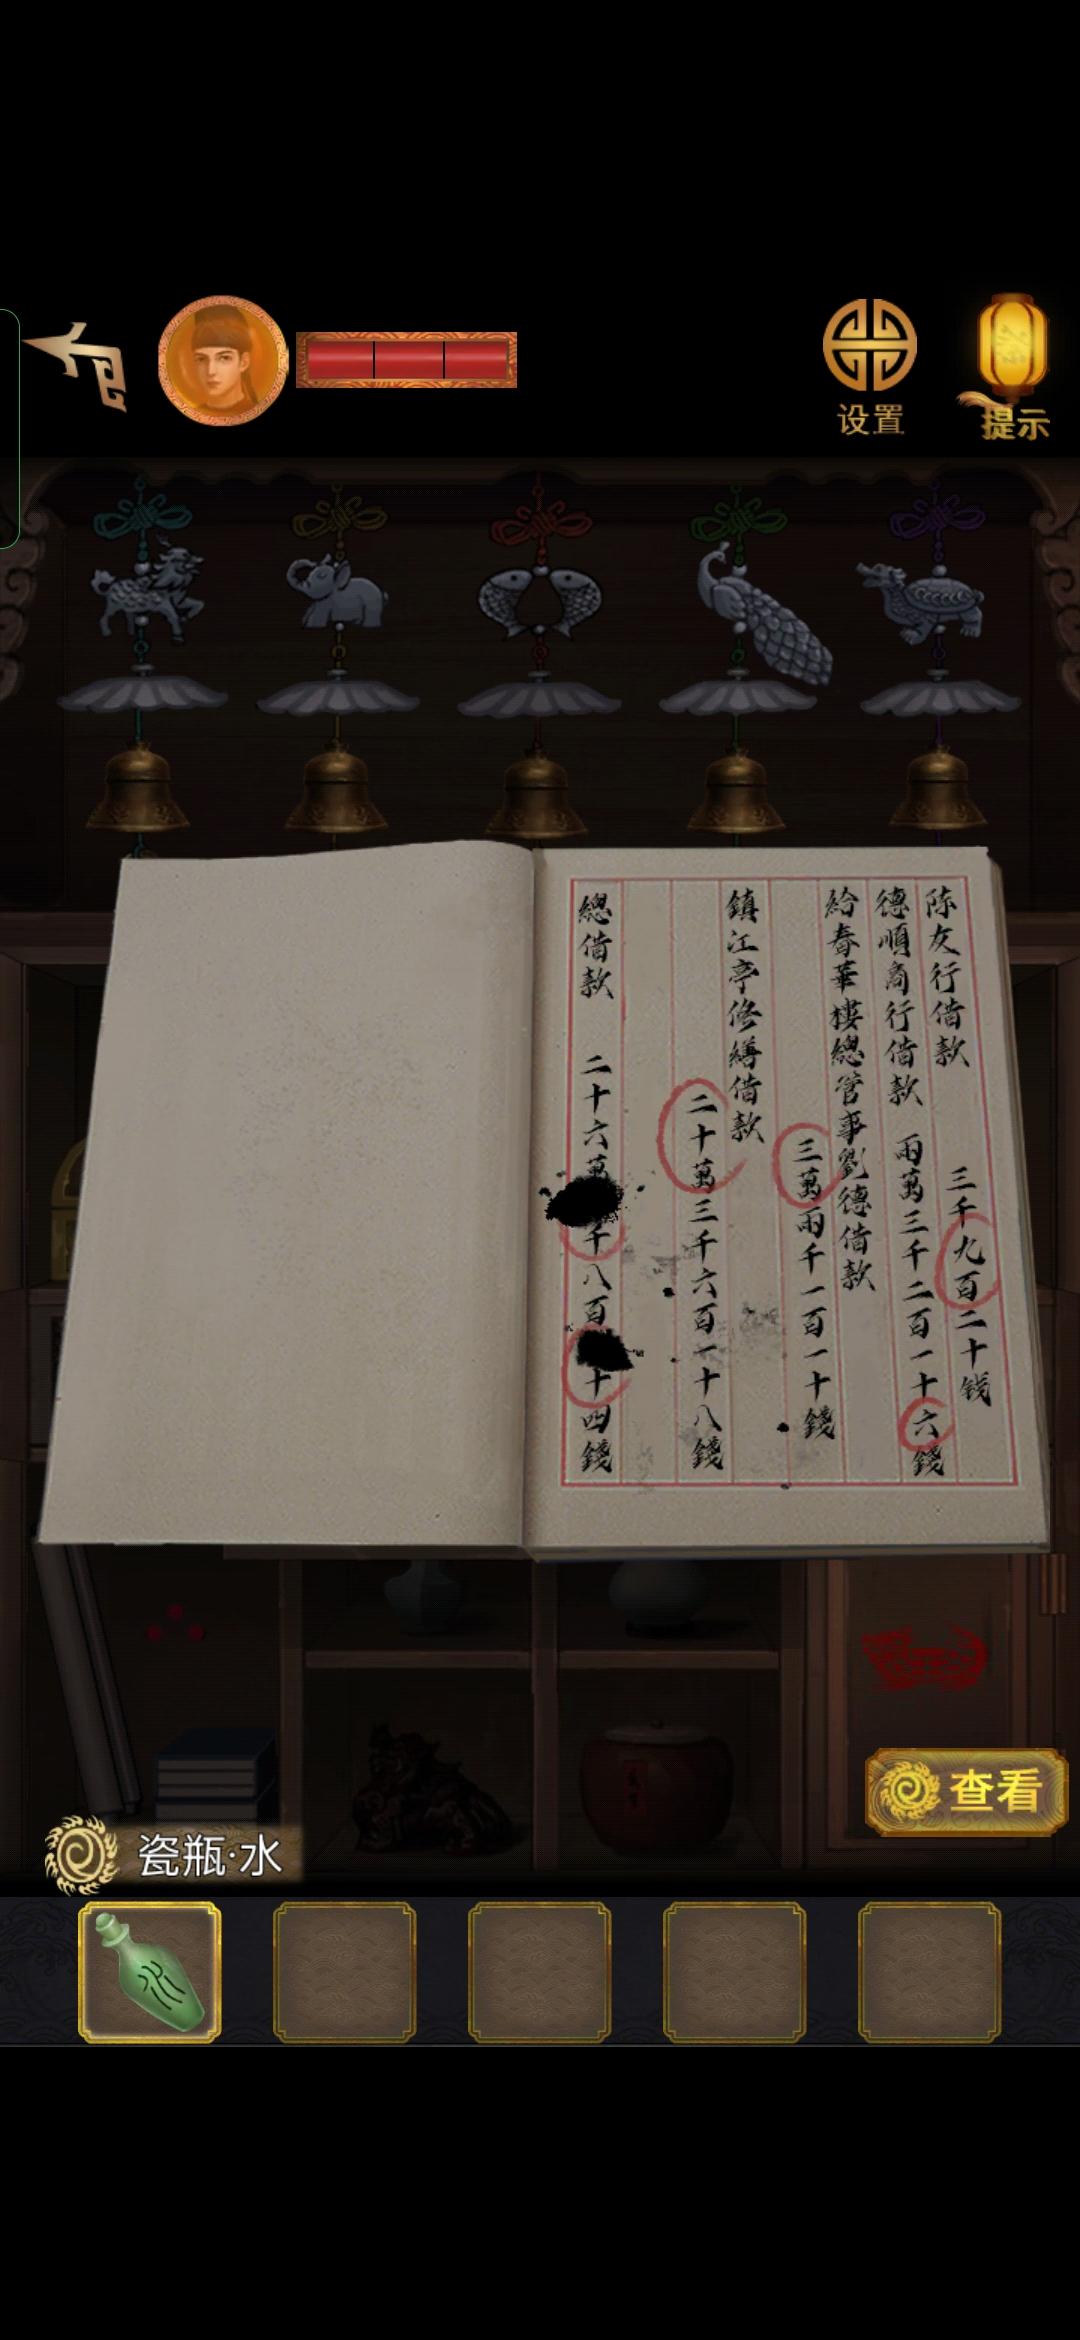 设置
提示
陈友行借款
三千九百二十錢
德順商行借款 兩萬三千二百一十六錢
給春華樓總管事劉德借款
三萬兩千一百一十錢
鎮江亭修繕借款
二十萬三千六百一十八錢
總借款 二十六萬
千八百
十四錢
查看
瓷瓶·水
水